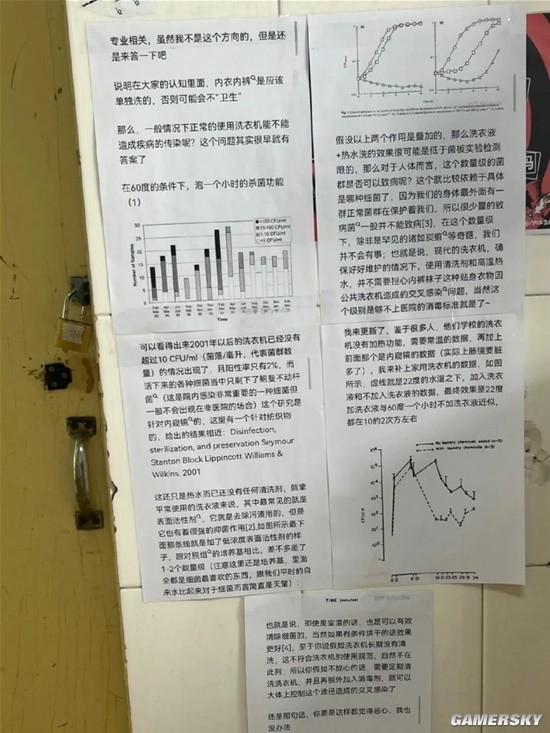 专业相关，虽然我不是这个方向的，但是还
是来答一下吧
说明在大家的认知里面，内衣内裤是应该
单独洗的，否则可能会不“卫生”
那么，一般情况下正常的使用洗衣机能不能
造成疾病的传染呢？这个问题其实很早就有
答案了
在60度的条件下，泡一个小时的杀菌功能
（1）
Number of Samples
>100 CFU/ml
10-100 CFU/ml
1-10 CFU/ml
<1 CFU/ml
Time
可以看得出来2001年以后的洗衣机已经没有
超过10 CFU/ml（菌落/毫升，代表菌群数
量）的情况出现了，且阳性率只有2%，而
活下来的各种细菌当中只剩下了鲍曼不动杆
菌（这是院内感染非常重要的一种细菌但
一般不会出现在非医院的场合）这个研究是
针对内窥镜的，这里有一个针对纺织物
的，给出的结果相近：Disinfection,
sterilization, and preservation Srymour
Stanton Block Lippincott Williams &
Wilkins, 2001
这还只是热水而已还没有任何清洗剂，就拿
平常使用的洗衣液来说，其中最常见的就是
表面活性剂，它就是去除污渍用的，但是
它也有着很强的抑菌作用[2],如图所示最下
面那条线就是加了低浓度表面活性剂的样
子，跟对照组的培养基相比，差不多差了
1-2个数量级（注意这里还是培养基，里面
全都是细菌最喜欢的东西，跟我们平时的自
来水比起来对于细菌而言简直是天堂）：
假设以上两个作用是叠加的，那么洗衣液
+热水洗的效果很可能是低于菌板实验检测
限的，那么对于人体而言，这个数量级的菌
群是否可以致病呢？这个就比较依赖于具体
是哪种细菌了，因为我们的身体最外面有一
群正常菌群在保护着我们，所以很少量的致
病菌一般并不能致病[3]，在这个数量级
下，除非是罕见的诸如炭疽等奇葩，我们
并不会有事；也就是说，现代的洗衣机，确
保好好维护的情况下，使用清洗剂和高温热
水，并不需要担心内裤袜子这种贴身衣物因
公共洗衣机造成的交叉感染问题，当然这
个级别是够不上医院的消毒标准就是了~
我来更新了，鉴于很多人，他们学校的洗衣机
没有加热功能，需要常温的数据，再加上
前面那个是内窥镜的数据（实际上肠镜要脏
多了），我来补上家用洗衣机的数据，如图
所示，虚线就是22度的水温之下，加入洗衣
液和不加入洗衣液的数据，最终效果是22度
加洗衣液与60度一个小时不加洗衣液近似，
都在10的2次方左右
No laundry chemicals added (n=5)
With laundry chemicals (n=5)
TIME (minutes)
也就是说，即使是室温的话，也是可以有效
清除细菌的，当然如果有条件烘干的话效果
更好[4]，至于你说假如洗衣机长期没有清
洗，这不符合洗衣机的使用规范，自然不在
此列，所以你假如不放心的话，需要定期清
洗洗衣机，并且再额外加入消毒剂，就可以
大体上控制这个途径造成的交叉感染了
还是那句话，你要是这样都觉得恶心，我也
没办法
GAMERSKY